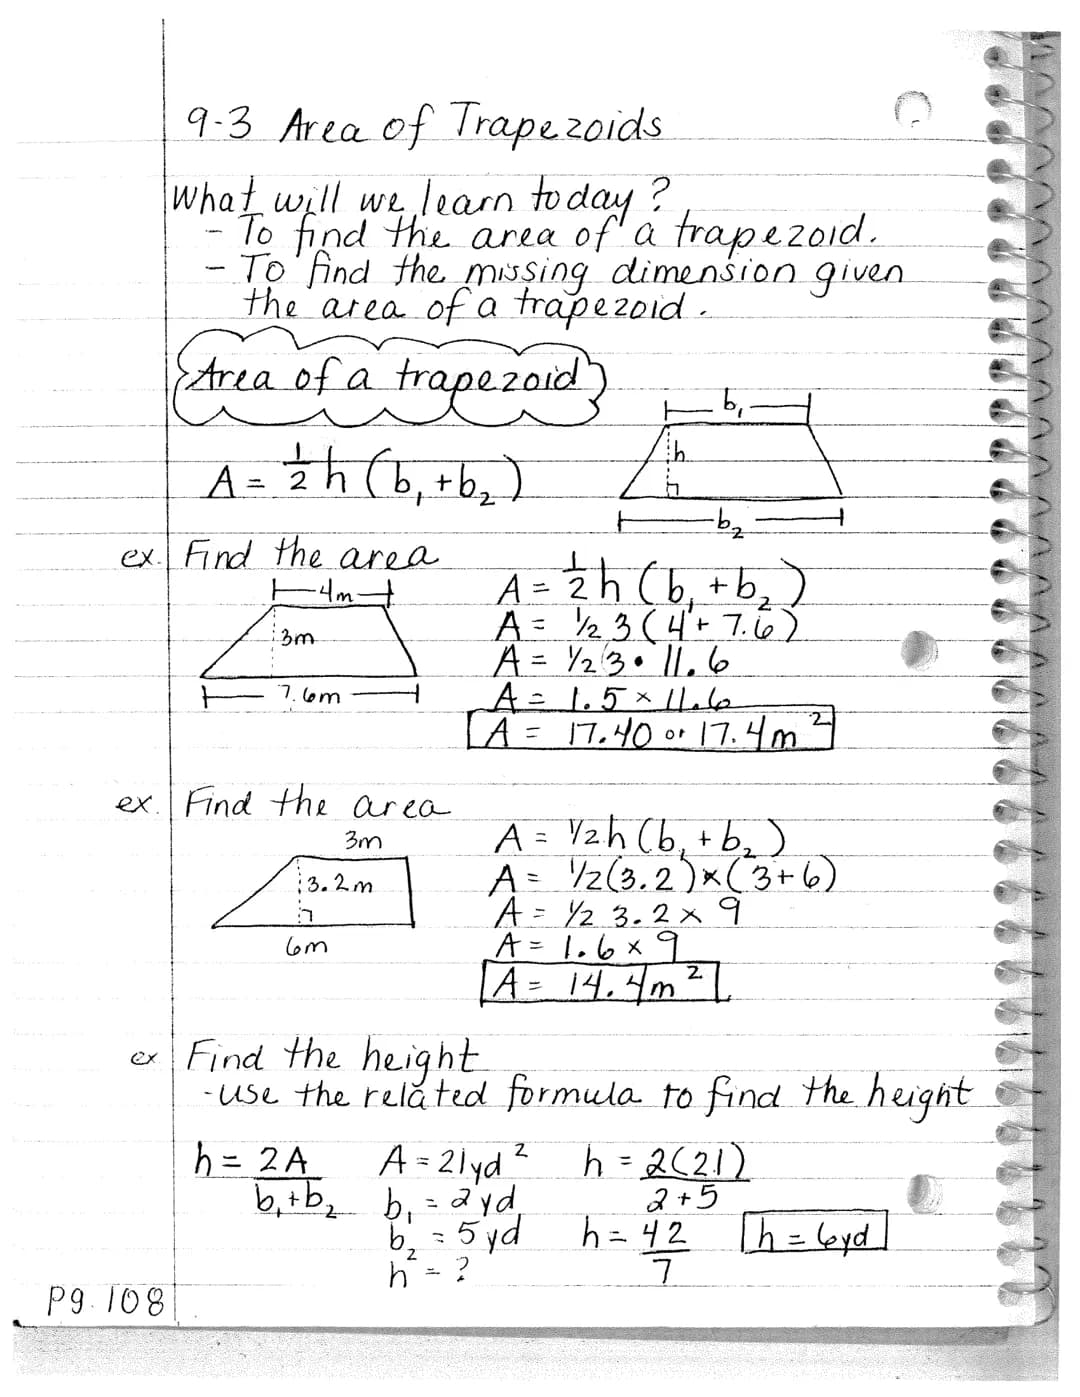 9-3 Area of Trapezoids
What will we learn today?
- To find the area of a trapezoid.
- To find the missing dimension given
the area of a trapezoid.
Area of a trapezoid
b₁
h
A = 1/2 h (b₁ + b₂)
b₂
ex. Find the area
4m
3m
7.6m
A = 1/2 h (b₁ + b₂)
A = 1/2 3 (4 + 7.6)
A = 1/2 3 • 11.6
A = 1.5 × 11.6
A = 17.40 or 17.4 m²
ex. Find the area
3m
3.2m
6m
A = 1/2 h (b₁ + b₂)
A = 1/2 (3.2) × (3+6)
A = 1/2 3.2 × 9
A = 1.6 × 9
A = 14.4 m²
ex Find the height
- use the related formula to find the height
h = 2A / b₁+b₂
A = 21 yd²
b₁ = 2 yd
b₂ = 5 yd
h = ?
h = 2(21) / 2+5
h = 42 / 7
h = 6yd
pg. 108